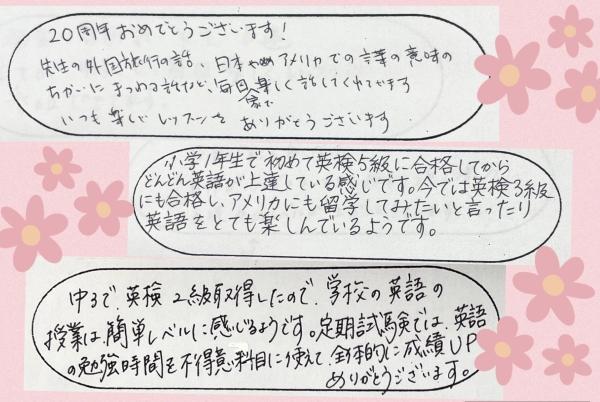 20周年おめでとうございます!
先生の外国旅行の話、日本やアメリカでの言葉の意味の
ちがいにまつわる話など、毎日家で楽しく話してくれてます
いつも楽しいレッスンを ありがとうございます
小学1年生で初めて英検5級に合格してから
どんどん英語が上達している感じです。今では英検3級
にも合格し、アメリカにも留学してみたいと言ったり
英語をとても楽しんでいるようです。
中3で、英検2級取得したので、学校の英語の
授業は、簡単レベルに感じるようです。定期試験では、英語
の勉強時間を不得意科目に使えて、全体的に成績UP
ありがとうございます。